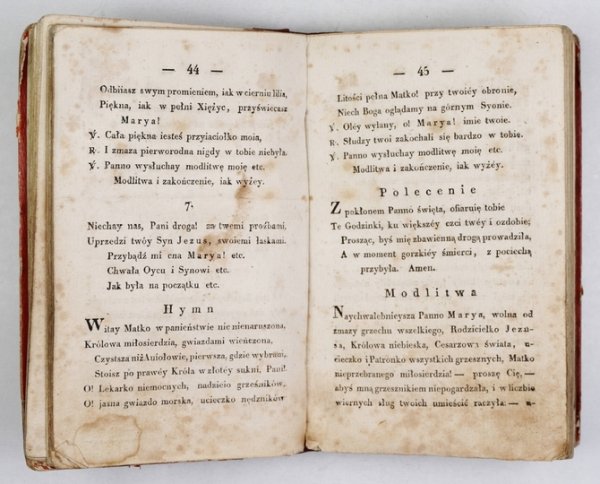 — 44 —
Odbiiasz swym promieniem, iak w cierniu lilia,
Piękna, iak w pełni Xiężyc, przyświecasz
Marya!
℣. Cała piękna iesteś przyiaciołko moia,
R. I zmaza pierworodna nigdy w tobie niebyła.
℣. Panno wysłuchay modlitwę moię etc.
Modlitwa i zakończenie, iak wyżey.
7.
Niechay nas, Pani droga! za twemi proźbami,
Uprzedzi twóy Syn Jezus, swoiemi łaskami.
Przybądź mi cna Marya! etc.
Chwała Oycu i Synowi etc.
Jak była na początku etc.
Hymn
Witay Matko w panieństwie nic nienaruszona,
Królowa miłosierdzia, gwiazdami wieńczona,
Czystsza niż Aniołowie, pierwsza, gdzie wybrani,
Stoisz po prawéy Króla w złotéy sukni, Pani!
O! Lekarko niemocnych, nadzieio grzeszników,
O! jasna gwiazdo morska, ucieczko nędzników
— 45 —
Litości pełna Matko! przy twoiéy obronie,
Niech Boga oglądamy na górnym Syonie.
℣. Oley wylany, o! Marya! imie twoie.
R. Słudzy twoi zakochali się bardzo w tobie.
℣. Panno wysłuchay modlitwę moię etc.
Modlitwa i zakończenie, iak wyżéy.
Polecenie
Z pokłonem Panno święta, ofiaruię tobie
Te Godzinki, ku większéy czci twéy i ozdobie;
Prosząc, byś mię zbawienną drogą prowadziła,
A w moment gorzkiéy śmierci, z pociechą
przybyła. Amen.
Modlitwa
Naychwalebnieysza Panno Marya, wolna od
zmazy grzechu wszelkiego, Rodzicielko Jezu-
sa, Królowa niebieska, Cesarzowo świata, u-
cieczko i Patronko wszystkich grzesznych, Matko
nieprzebranego miłosierdzia! — proszę Cię, —
abyś mną grzesznikiem niepogardzała, i w liczbie
wiernych sług twoich umieścić raczyła: — u-